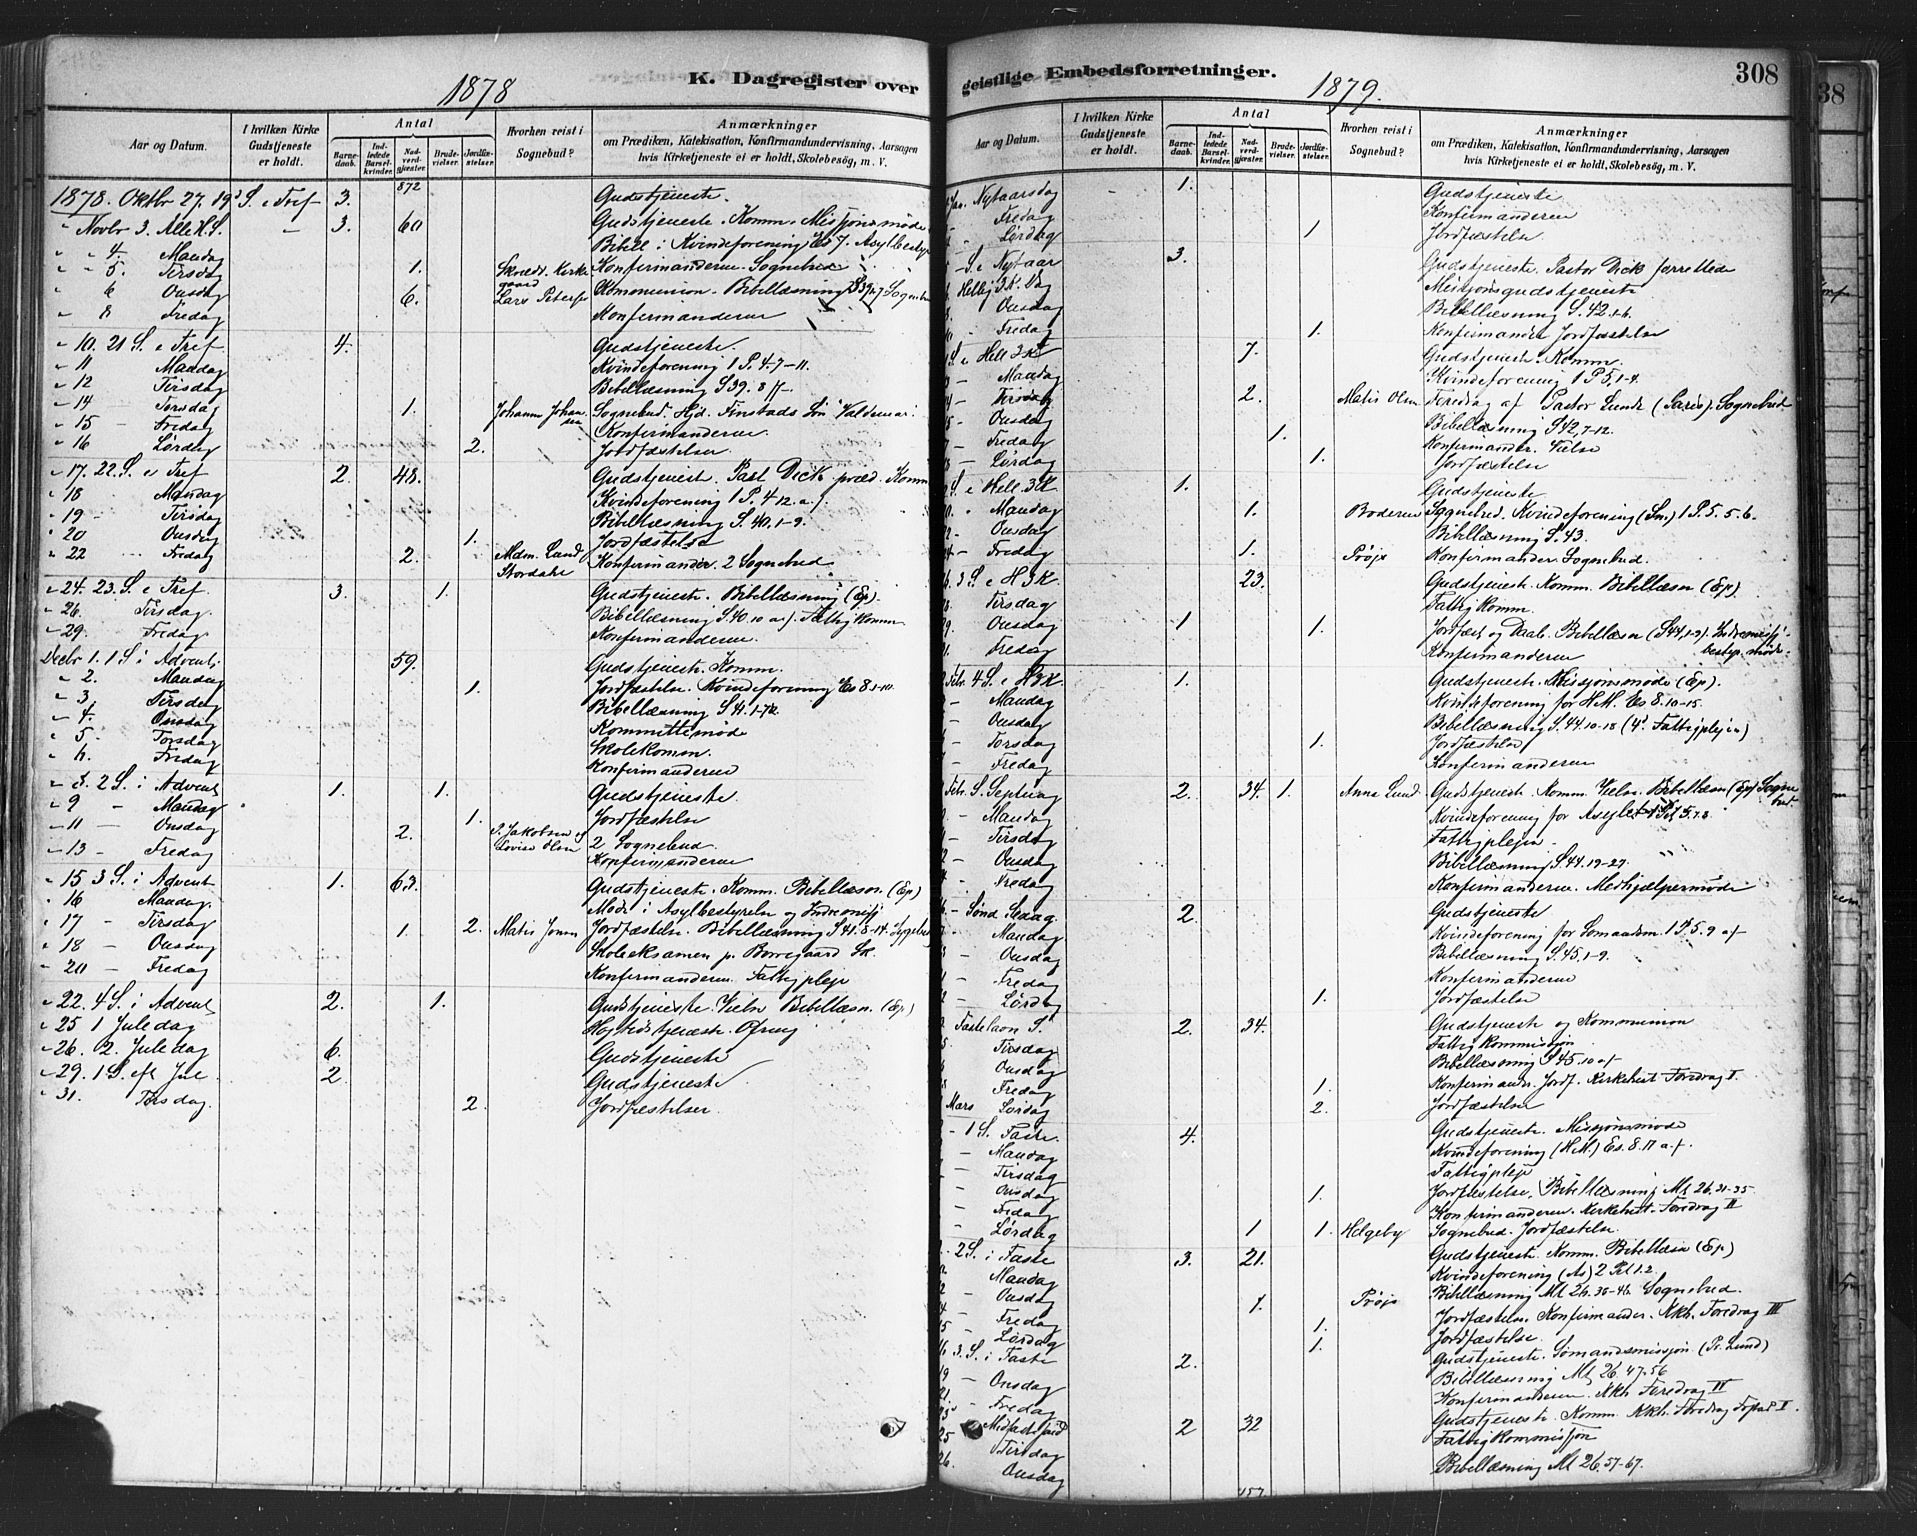 K. Dagregister over
1878
Aar og Datum. I hvilken Kirke Gudstjeneste er holdt. Antal Barnedaab. Indledede Barselkvinder. Nadverdgjæster Brudevielser. Jordfæstelser. Hvorhen reist i Sognebud? Anmærkninger om Prædiken, Katekisation, Konfirmandundervisning, Aarsagen hvis Kirketjeneste ei er holdt, Skolebesøg, m. V.
872
1878. Oktbr 27. 19 S. e Tref 3. Gudstjeneste.
" Novbr 3. Alle H. S. – 3. 60 Gudstjeneste. Komm. Missjonsmøde
" " 4. Mandag Bibell i Kvindeforening Es 7. Asylbestyr
" " 5. Tirsdag 1. Konfirmanderne. Sognebud
" 6 Onsdag 6. Lars Peters Kommunion. Bibellæsning S 39.1-7 Sognebud
" 8 Fredag Konfirmanderne
" 10. 21 S. e Tref 4. Gudstjeneste.
" 11 Mandag Kvindeforening 1 P. 4. 7-11.
" 12 Tirsdag Bibellæsning S 39. 8 ff
" 14 Torsdag 1. Johanne Johansen Sognebud. Hjd. Finstads Søn Valdemar.
" 15 – Fredag Konfirmanderne.
" 16 Lørdag 2. Jordfæstelser.
" 17. 22. S. e Tref 2. 48. Gudstjeneste. Past Dick præd. Komm
" 18 Mandag Kvindeforening 1 P. 4 12 a f
" 19 – Tirsdag Bibellæsning S. 40. 1-9.
" 20 Onsdag 1. Jordfæstelse
" 22 Fredag 2. Mdm. Lund Stordahl Konfirmander. 2 Sognebud
" 24. 23. S. e Tref. 3. 1. Gudstjeneste. Bibellæsning (Ep).
" 26. Tirsdag. Bibellæsning S. 40. 10 a f. Fattigkomm
" 29. Fredag. Konfirmanderne.
Decbr 1. 1 S i Advent. 59. Gudstjeneste. Komm.
" 2. Mandag 1. Jordfæstelse. Kvindeforening Es 8. 1-10.
" 3 Tirsdag Bibellæsning S 41. 1-7
" 4. Onsdag Kommittemøde
" 5 Torsdag Skolekomm.
" 6. Fredag Konfirmanderne
2 S. i Advent 1. 1. Gudstjeneste.
" 9 – Mandag 1. Jordfæstelse
" 11 – Onsdag 2. P. Jakobsen og Lovise Olsen 2 Sognebud.
" 13 – Fredag Konfirmanderne
" 15 3 S. i Advent 1. 63. Gudstjeneste. Komm. Bibellæsn. (Ep)
" 16 Mandag. Møde i Asylbestyrelse og Indremissj
" 17 – Tirsdag 1. 2. Matis Jonsen Jordfæstelse. Bibellæsning S 41. 8-14.
" 18 – Onsdag Skoleeksamen p. Borregaard Sk.
" 20 – Fredag Konfirmanderne. Fattigpleje
" 22. 4 S. i Advent 2. 1. Gudstjeneste. Vielse Bibellæsn. (Ep)
" 25 1 Juledag Højtidstjeneste. Ofring
" 26. 2. Juledag 6. Gudstjeneste
" 29. 1 S. eft Jul 2. Gudstjeneste
" 31. Tirsdag. 2. Jordfæstelser.
geistlige Embedsforretninger.
1879.
308
38
Aar og Datum. I hvilken Kirke Gudstjeneste er holdt. Antal Barnedaab. Indledede Barselkvinder. Nadverdgjæster Brudevielser. Jordfæstelser. Hvorhen reist i Sognebud? Anmærkninger om Prædiken, Katekisation, Konfirmandundervisning, Aarsagen hvis Kirketjeneste ei er holdt, Skolebesøg, m. V.
Jan. Nytaarsdag – 1. Gudstjeneste
Fredag Konfirmanderne
Lørdag 1 Jordfæstelse.
S. e Nytaar 3. Gudstjeneste. Pastor Dick forrettede
Hellig 3. K. Dag Missjonsgudstjeneste
Onsdag Bibellæsning S. 42. 1-6.
Fredag 1. Konfirmander Jordfæstelse
S. e Hell 3 K 7. Gudstjeneste. Komm.
Mandag Kvindeforening 1 P 5, 1-4.
Tirsdag 2. Matis Olsen Foredrag af Pastor Lunde (Paris). Sognebud
Onsdag Bibellæsning S 42, 7-12.
Fredag 1. Konfirmander. Vielse
Lørdag 1. Jordfæstelse
S. e Hell. 3 K 1. Gudstjeneste
Mandag 1. Boderne Sognebud. Kvindeforening (Sm.) 1 P. 5. 5-6.
Onsdag Bibellæsning S. 43.
Fredag 1. Prøjs Konfirmander. Sognebud.
3 S. e H3K 23. Gudstjeneste. Komm. Bibellæsn (Ep)
Tirsdag Fattigkomm.
Onsdag 1 1. Jordfæst og Daab. Bibellæsn (S 44, 1-9). Indremissj.
Fredag Konfirmanderne bestyr. møde.
Febr. 4 S. e H3K. 1. Gudstjeneste. Missjonsmøde (Ep).
Mandag Kvindeforening for H.M. Es 8. 10-15.
Onsdag Bibellæsning S. 44 10-18 (4. Fattigplejen)
Torsdag 1. Jordfæstelse
Fredag Konfirmanderne
Febr. S. Septuag 2. 34. 1. Anna Lund Gudstjeneste. Komm. Vielse. Bibellæsn (Ep) Sognebud.
Mandag Kvindeforening for Asylet 5. 7.8.
Tirsdag Fattigplejen.
Onsdag Bibellæsning S. 44. 19-27.
Fredag Konfirmanderne. Medhjælpermøde
Sønd Sexag. 2. Gudstjeneste
Mandag Kvindeforening for Sømandsm. 1 P. 5. 9 af
Onsdag Bibellæsning S. 45. 1-9.
Fredag Konfirmanderne
Lørdag 1. Jordfæstelse
Fastelavn S. 2. 34. Gudstjeneste og Kommunion
Tirsdag Fattigkommissjon
Onsdag Bibellæsning S 45. 10 af
Fredag 1. Konfirmander. Jordf. Kirkehist Foredrag I.
Mars Lørdag 2. Jordfæstelser
1 S. Faste. 4. Gudstjeneste. Missjonsmøde
Mandag Kvindeforening (H.M.) Es. 8. 17 a f.
Tirsdag Fattigpleje
Onsdag 1. Jordfæstelse. Bibellæsning Mt 26. 31-35
Fredag Konfirmanderne. Kirkehist. Foredrag II
Lørdag 1 1. Helgeby Sognebud. Jordfæstelse.
2 S. i Faste 3. 21. Gudstjeneste. Komm. Bibellæsn (Ep)
Mandag Kvindeforening (As) 2 Pet 1. 2.
Onsdag 1. Prøjs Bibellæsning Mt 26. 36-46 Sognebud.
Fredag 1. Jordfæstelse. Konfirmander. Kkh. Foredrag III
Lørdag 1. Jordfæstelse.
3. S. i Faste 2. Gudstjeneste. Sømandsmissjon. (Pr. Lund)
Onsdag Bibellæsning Mt 26. 47-56
Fredag Konfirmanderne. Kkh Foredrag IV
Midfastesønd 2 32 Gudstjeneste. Komm. Kkh. Foredrag V.
25 Tirsdag Fattigkommissjon
26. Onsdag Bibellæsning Mt 26. 57-67.
157